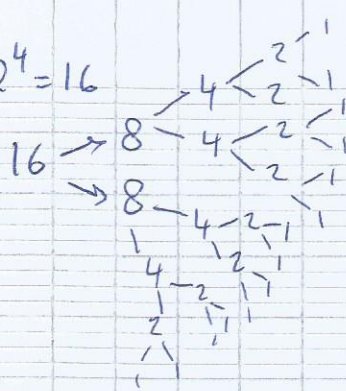 2^4 = 16
16 → 8 4 2 1
2 1
4 2 1
1
2 1
1
→ 8 4 2 1
2 1
1
4 2 1
1
2
1